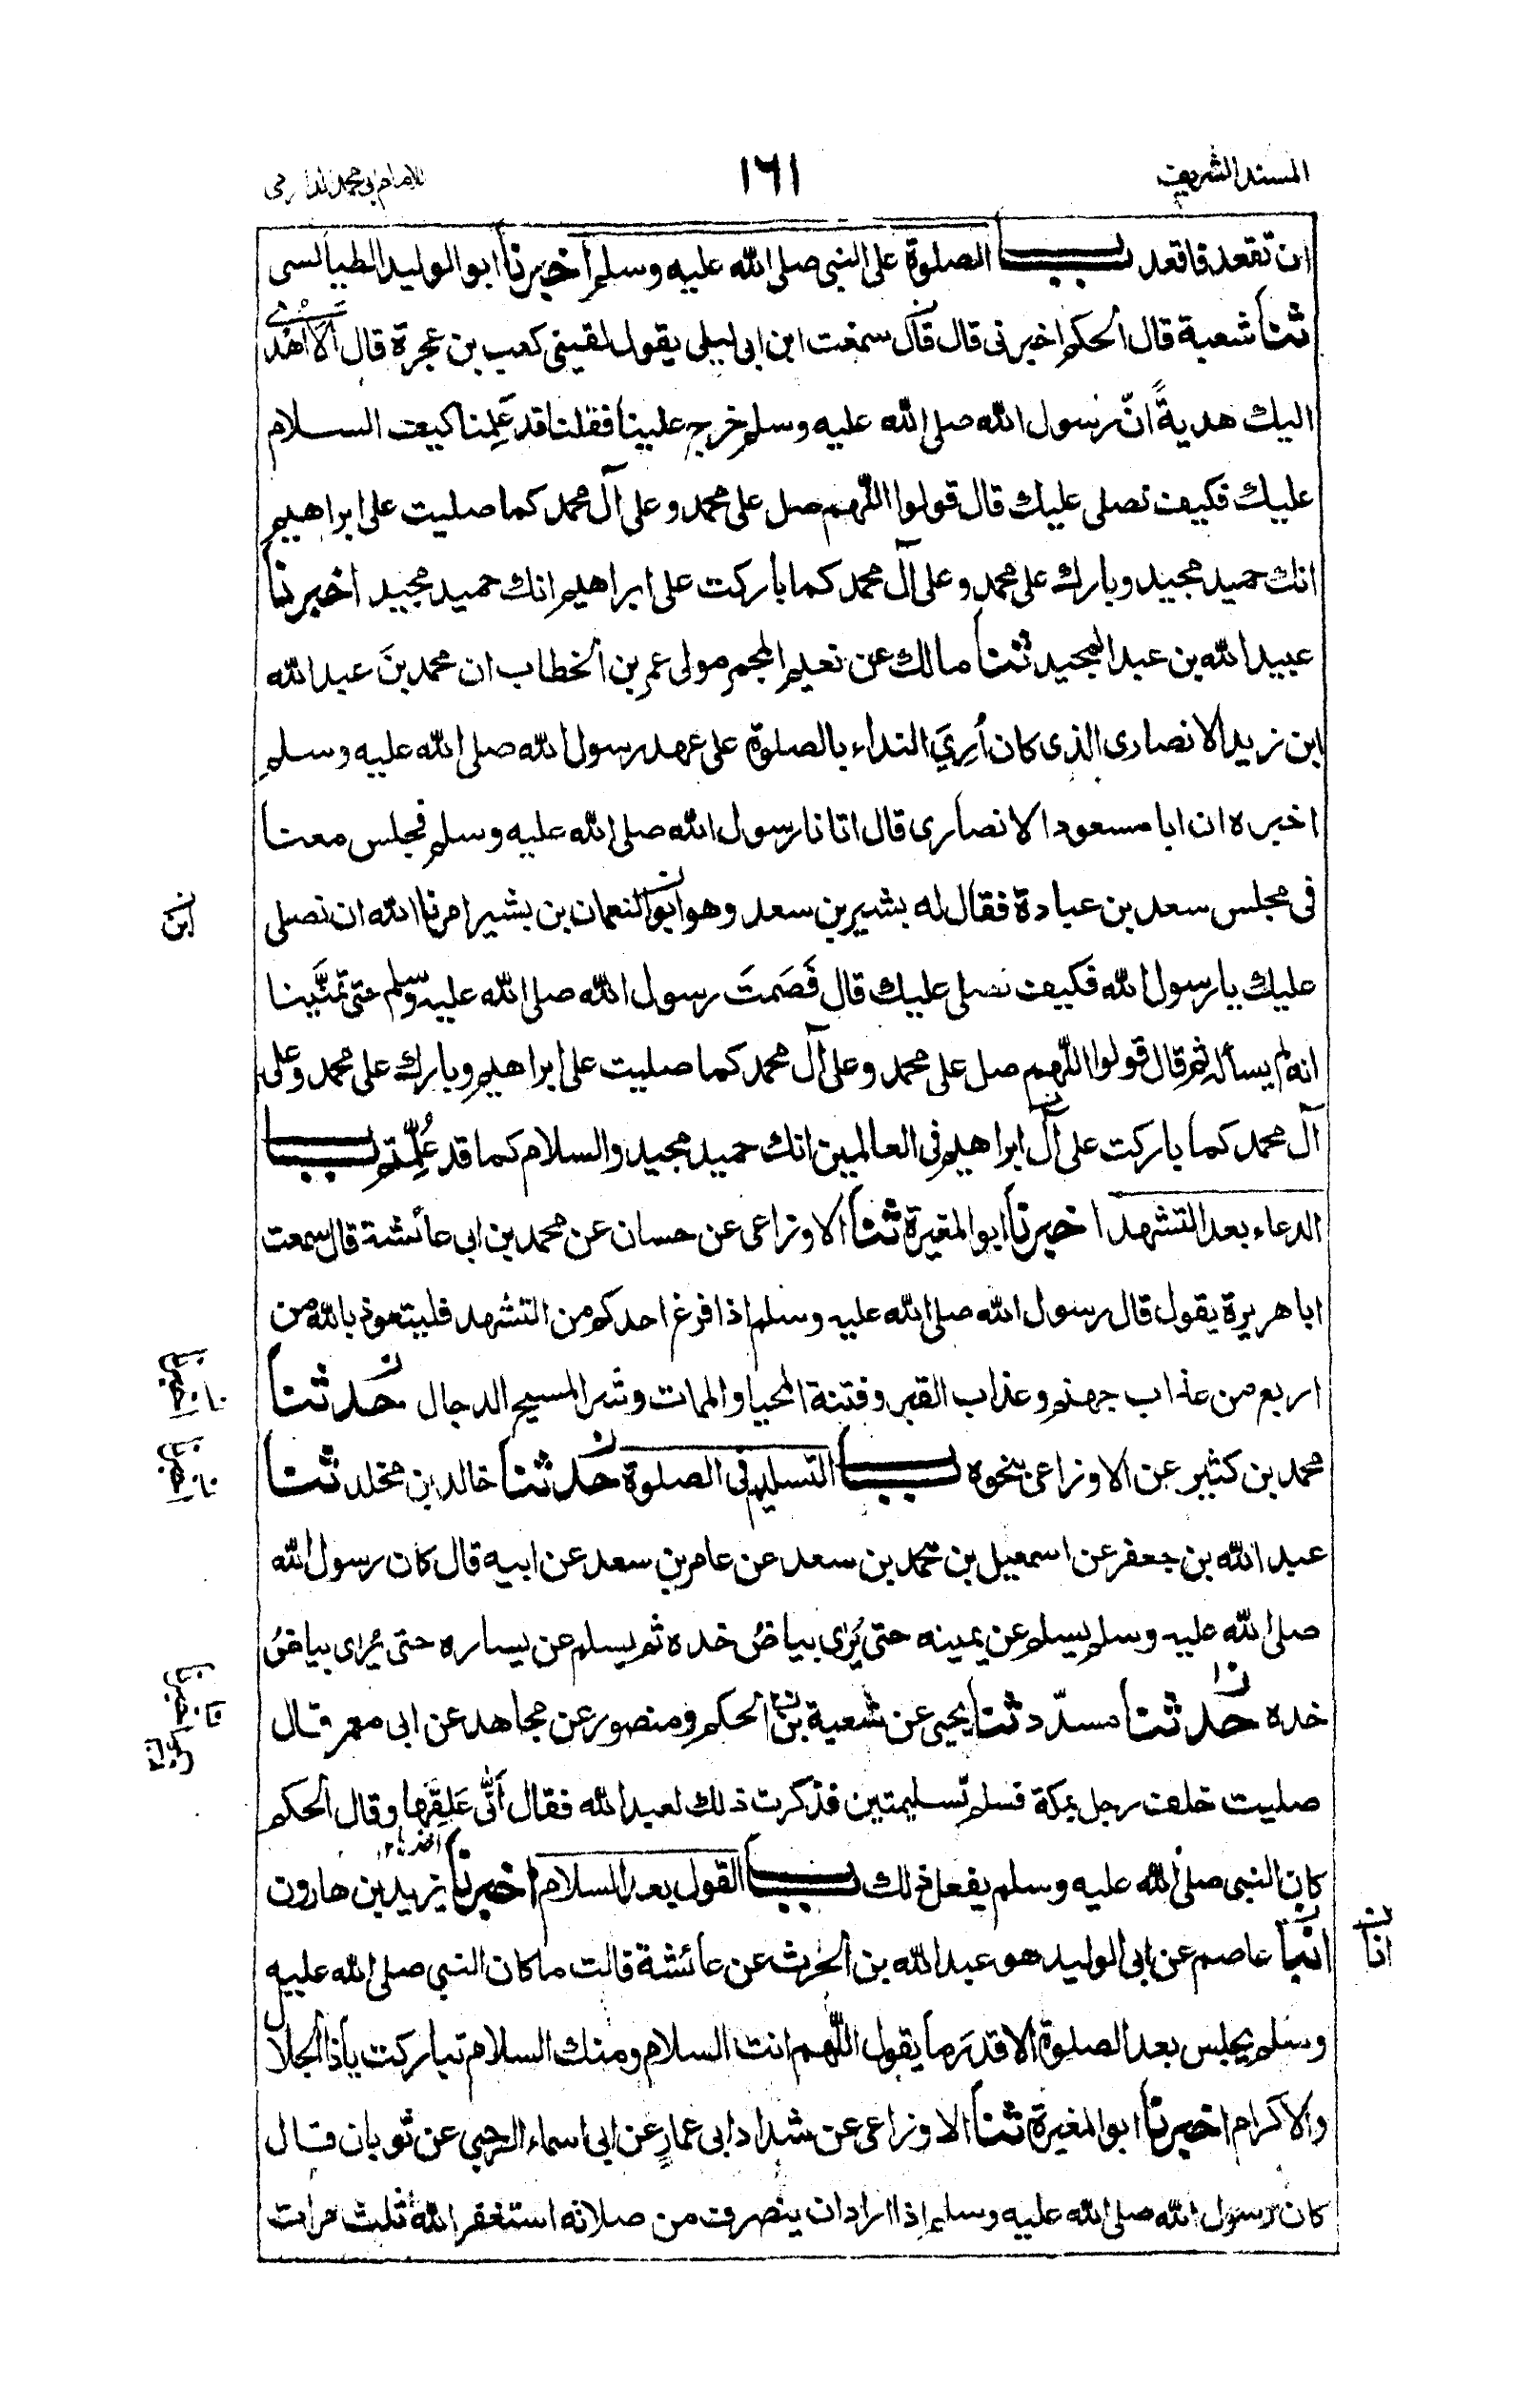 المسند الشريف
١٦١
للامام ابى محمد الدارمى
ان تقعد فاقعد باب الصلوة على النبى صلى الله عليه وسلم اخبرنا ابو الوليد الطيالسى
ثنا شعبة قال الحكم اخبرنى قال قال سمعت ابن ابى ليلى يقول لقينى كعب بن عجرة قال الا اهدى
اليك هديةً انّ رسول الله صلى الله عليه وسلم خرج علينا فقلنا قد عَلِمنا كيف السلام
عليك فكيف نصلى عليك قال قولوا اللّهم صل على محمد وعلى آل محمد كما صليت على ابراهيم
انك حميد مجيد وبارك على محمد وعلى آل محمد كما باركت على ابراهيم انك حميد مجيد اخبرنا
عبيد الله بن عبد المجيد ثنا مالك عن نعيم المجمر مولى عمر بن الخطاب ان محمد بن عبد الله
ابن زيد الانصارى الذى كان اُرِيَ النداء بالصلوة على عهد رسول الله صلى الله عليه وسلم
اخبره ان ابا مسعود الانصارى قال اتانا رسول الله صلى الله عليه وسلم فجلس معنا
فى مجلس سعد بن عبادة فقال له بشير بن سعد وهو ابو النعمان بن بشير امرنا الله ان نصلى
ابن
عليك يا رسول الله فكيف نصلى عليك قال فَصَمتَ رسول الله صلى الله عليه وسلم حتى تمنَّينا
انه لم يسأله ثم قال قولوا اللّهم صل على محمد وعلى آل محمد كما صليت على ابراهيم وبارك على محمد وعلى
آل محمد كما باركت على آل ابراهيم فى العالمين انك حميد مجيد والسلام كما قد عُلِّمتم باب
الدعاء بعد التشهد اخبرنا ابو المغيرة ثنا الاوزاعى عن حسان عن محمد بن ابى عائشة قال سمعت
ابا هريرة يقول قال رسول الله صلى الله عليه وسلم اذا فرغ احدكم من التشهد فليتعوذ بالله من
اربع من عذاب جهنم وعذاب القبر وفتنة المحيا والممات وشر المسيح الدجال حدثنا
اخبرنا
محمد بن كثير عن الاوزاعى بنحوه باب التسليم فى الصلوة حدثنا خالد بن مخلد ثنا
اخبرنا
عبد الله بن جعفر عن اسمعيل بن محمد بن سعد عن عامر بن سعد عن ابيه قال كان رسول الله
صلى الله عليه وسلم يسلم عن يمينه حتى يُرٰى بياضُ خده ثم يسلم عن يساره حتى يُرٰى بياضُ
خده حدثنا مسدّد ثنا يحيى عن شعبة بن الحكم ومنصور عن مجاهد عن ابى معمر قال
اخبرنا
صليت خلف رجل بمكة فسلم تسليمتين فذكرت ذلك لعبد الله فقال اَنّٰى عَلِقَها وقال الحكم
كان النبى صلى الله عليه وسلم يفعل ذلك باب القول بعد السلام اخبرنا يزيد بن هارون
انبا عاصم عن ابى الوليد هو عبد الله بن الحرث عن عائشة قالت ما كان النبى صلى الله عليه
انا
وسلم يجلس بعد الصلوة الا قدرَ ما يقول اللّهم انت السلام ومنك السلام تباركت يا ذا الجلال
والاكرام اخبرنا ابو المغيرة ثنا الاوزاعى عن شداد ابى عمارٍ عن ابى اسماء الرحبى عن ثوبان قال
كان رسول الله صلى الله عليه وسلم اذا اراد ان ينصرف من صلاته استغفر الله ثلث مرات